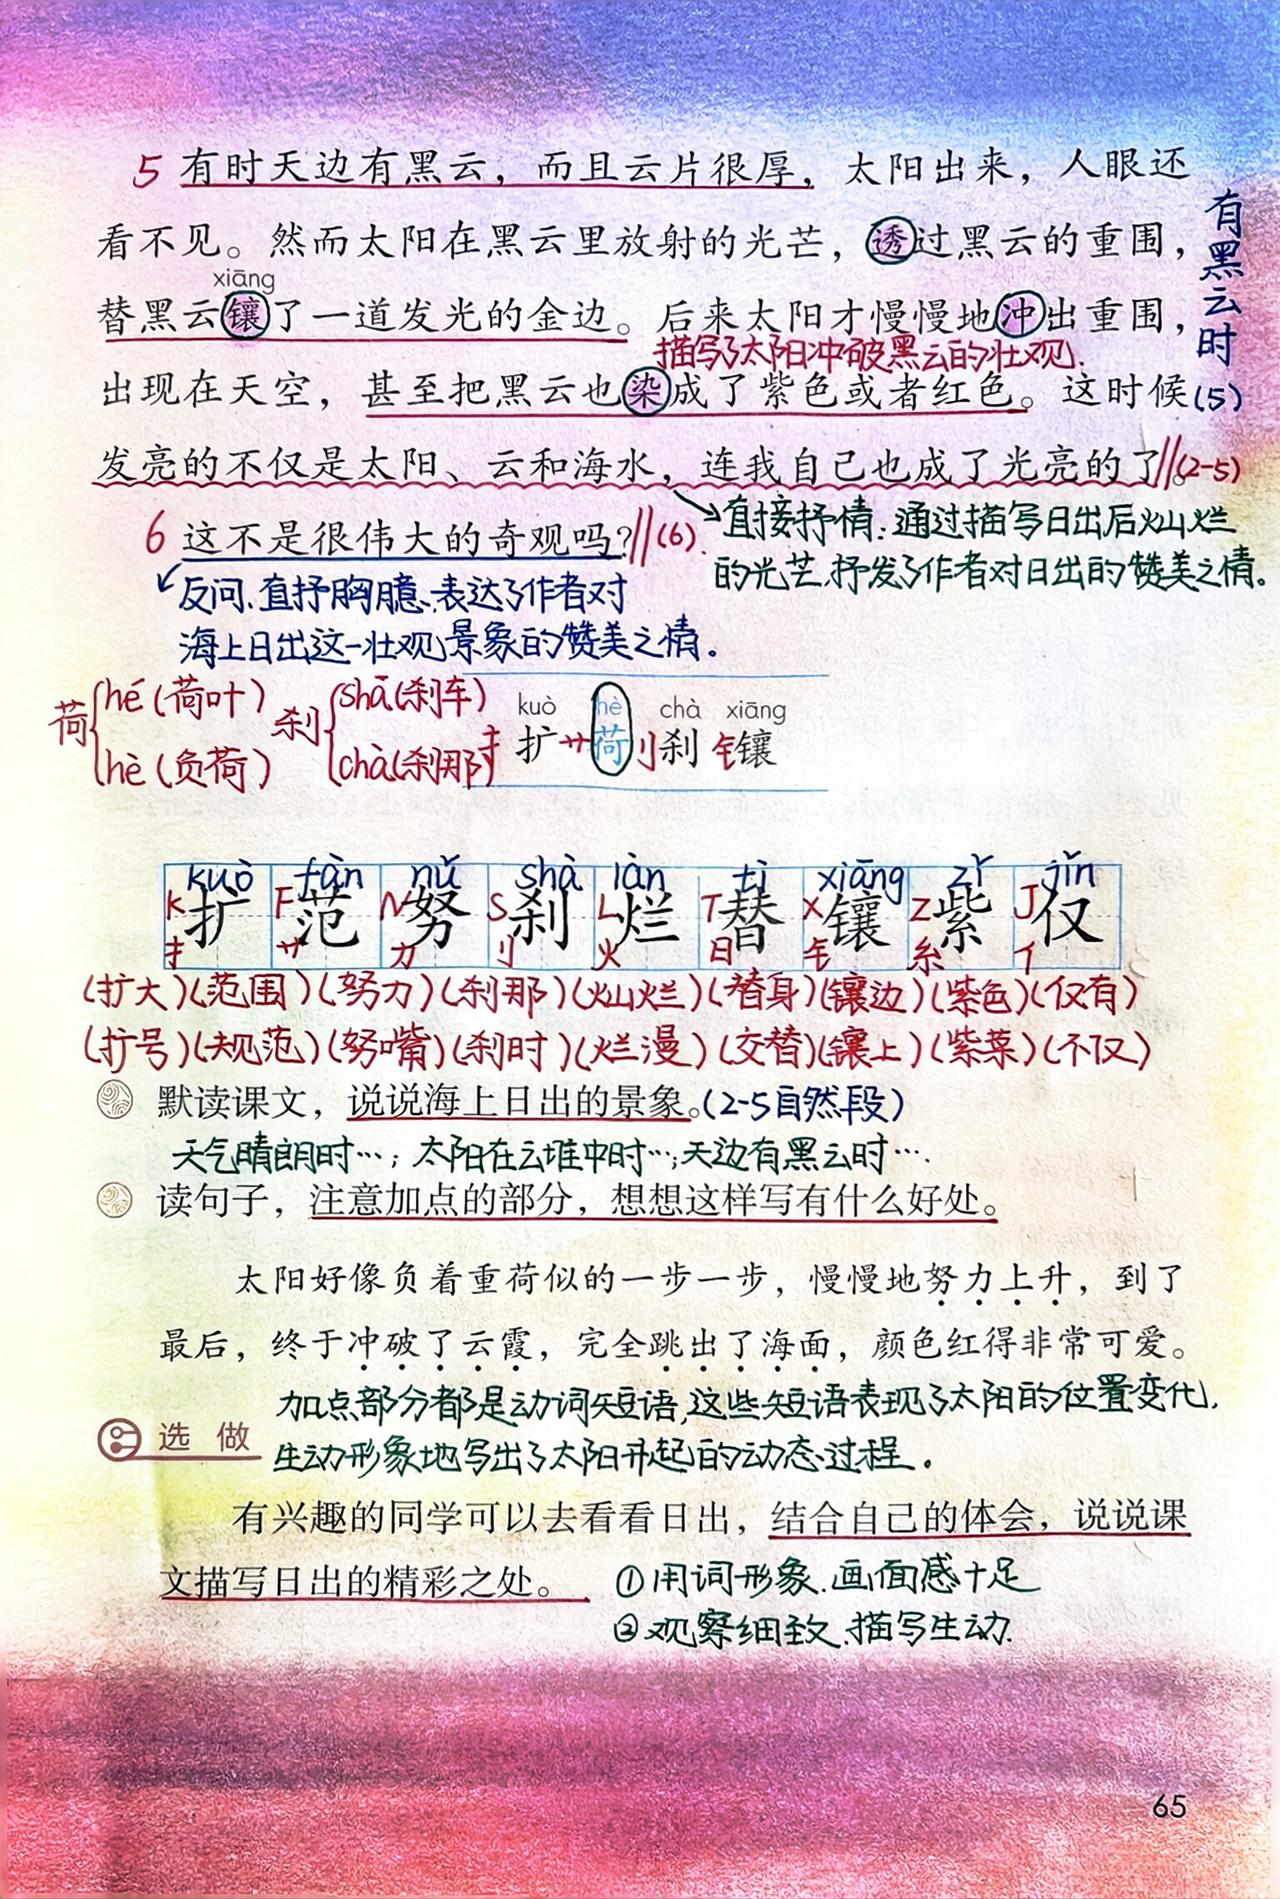 5 有时天边有黑云，而且云片很厚，太阳出来，人眼还
看不见。然而太阳在黑云里放射的光芒，透过黑云的重围，
xiāng
替黑云镶了一道发光的金边。后来太阳才慢慢地冲出重围，
描写了太阳冲破黑云的壮观.
出现在天空，甚至把黑云也染成了紫色或者红色。这时候
有黑云时(5)
发亮的不仅是太阳、云和海水，连我自己也成了光亮的了。//(2-5)
直接抒情:通过描写日出后灿烂
的光芒.抒发了作者对日出的赞美之情。
6 这不是很伟大的奇观吗?//(6).
反问.直抒胸臆.表达了作者对
海上日出这一壮观景象的赞美之情。
荷 hé(荷叶) hè(负荷)
刹 shā(刹车) chà(刹那)
kuò hè chà xiāng
扌扩 艹荷 刂刹 钅镶
kuò fàn nǔ shà làn tì xiāng zǐ jǐn
K扩 F范 N努 S刹 L烂 T替 X镶 Z紫 J仅
扌 艹 力 刂 火 日 钅 糸 亻
(扩大)(范围)(努力)(刹那)(灿烂)(替身)(镶边)(紫色)(仅有)
(扩号)(规范)(努嘴)(刹时)(烂漫)(交替)(镶上)(紫菜)(不仅)
默读课文，说说海上日出的景象。(2-5自然段)
天气晴朗时…; 太阳在云堆中时…;天边有黑云时….
读句子，注意加点的部分，想想这样写有什么好处。
太阳好像负着重荷似的一步一步，慢慢地努力上升，到了
最后，终于冲破了云霞，完全跳出了海面，颜色红得非常可爱。
加点部分都是动词短语,这些短语表现了太阳的位置变化,
选做
生动形象地写出了太阳升起的动态过程。
有兴趣的同学可以去看看日出，结合自己的体会，说说课
文描写日出的精彩之处。
①用词形象.画面感十足
②观察细致.描写生动.
65